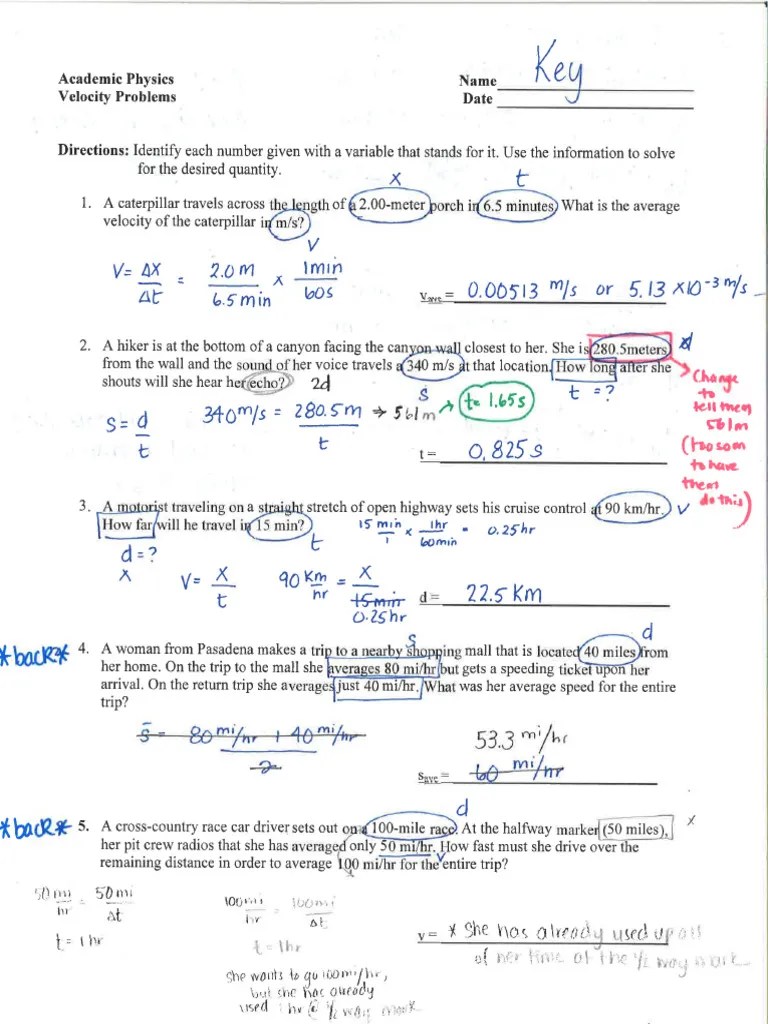 Key
Academic Physics
Velocity Problems
Name
Date
Directions: Identify each number given with a variable that stands for it. Use the information to solve
for the desired quantity.
x t
1. A caterpillar travels across the length of a 2.00-meter porch in 6.5 minutes. What is the average
velocity of the caterpillar in m/s?
V
V = ΔX / Δt = 2.0 m / 6.5 min x 1 min / 60s
vave = 0.00513 m/s or 5.13 x10-3 m/s
2. A hiker is at the bottom of a canyon facing the canyon wall closest to her. She is 280.5meters d
from the wall and the sound of her voice travels a 340 m/s at that location. How long after she
shouts will she hear her echo? 2d
s
t = ?
S = d / t
340 m/s = 280.5 m / t → 561m → t= 1.65s
t = 0.825 s
Change
to
tell them
561m
(too soon
to have
them
do this)
3. A motorist traveling on a straight stretch of open highway sets his cruise control at 90 km/hr. V
How far will he travel in 15 min?
t
15 min / 1 x 1hr / 60min = 0.25hr
d = ?
x
V = X / t
90 Km / hr = X / 15 min
0.25hr
d = 22.5 KM
d
s
*back* 4. A woman from Pasadena makes a trip to a nearby shopping mall that is located 40 miles from
her home. On the trip to the mall she averages 80 mi/hr but gets a speeding ticket upon her
arrival. On the return trip she averages just 40 mi/hr. What was her average speed for the entire
trip?
s = 80 mi/hr + 40 mi/hr / 2
53.3 mi/hr
save = 60 mi/hr
d
*back* 5. A cross-country race car driver sets out on a 100-mile race. At the halfway marker (50 miles), x
her pit crew radios that she has averaged only 50 mi/hr. How fast must she drive over the
remaining distance in order to average 100 mi/hr for the entire trip?
v
50 mi / hr = 50 mi / Δt
t = 1 hr
100 mi / hr = 100 mi / Δt
t = 1hr
v = * She has already used up all
of her time at the 1/2 way mark
she wants to go 100mi/hr,
but she has already
used 1 hr @ 1/2 way mark